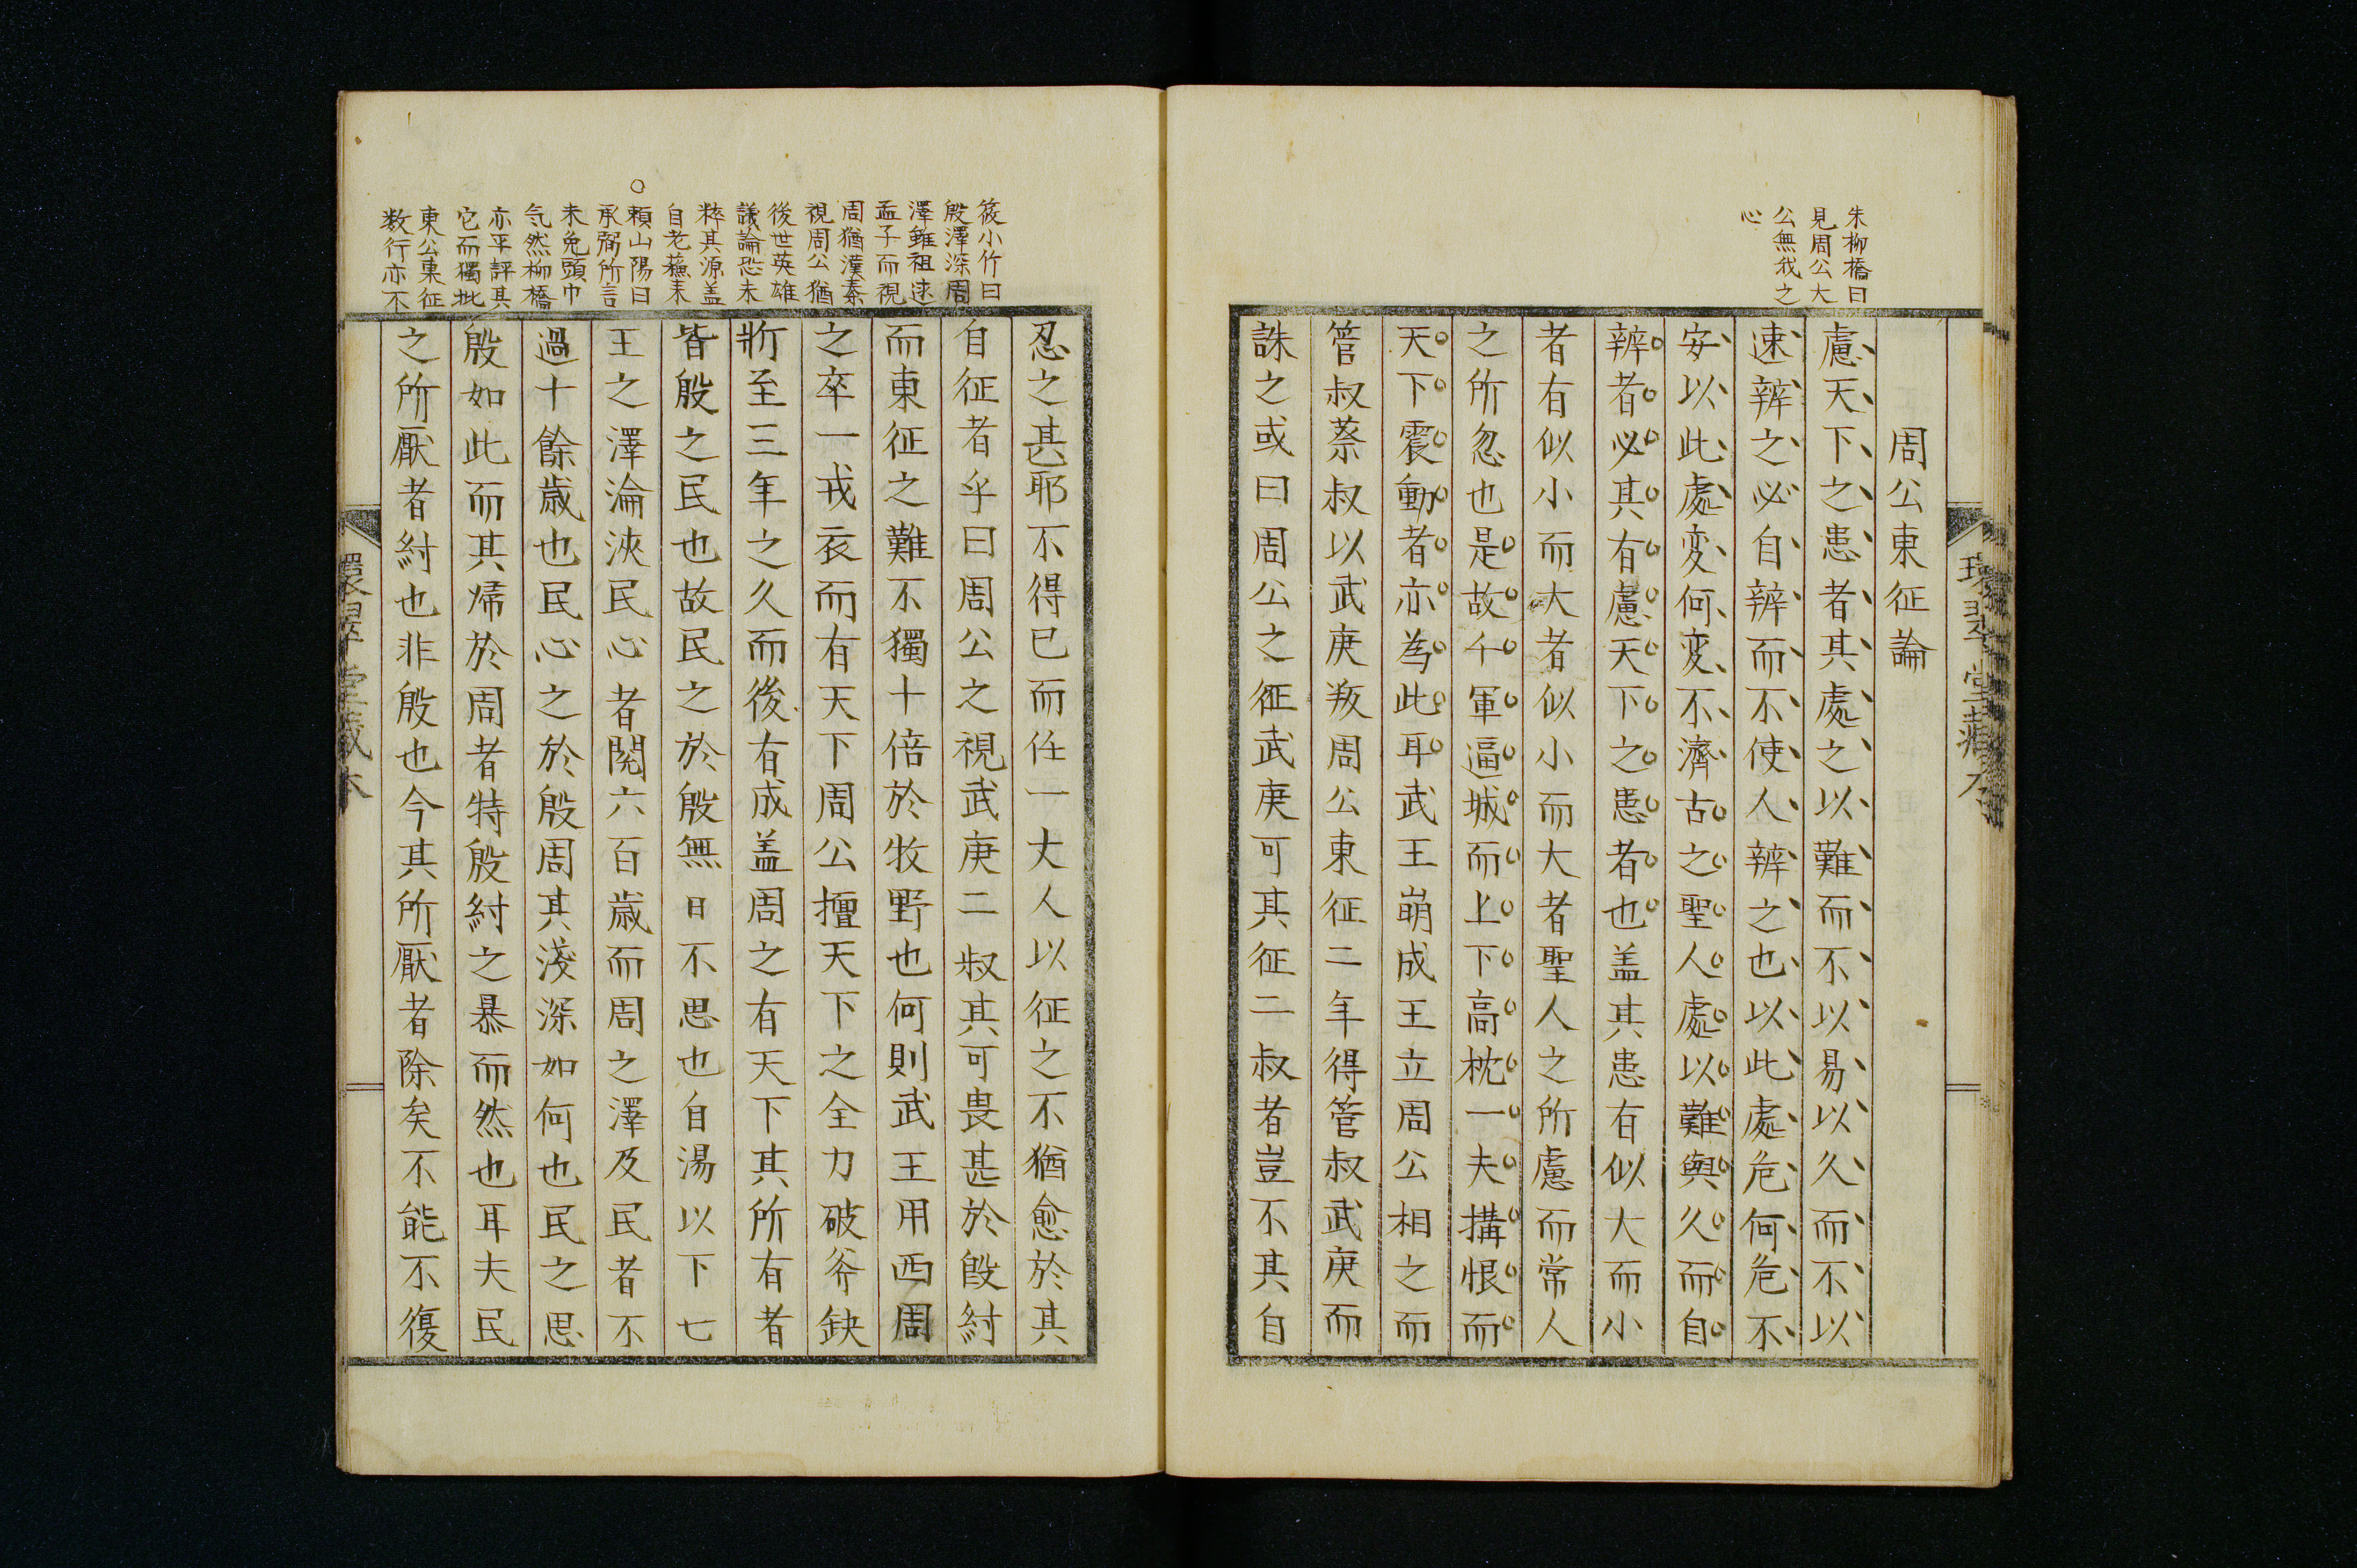 朱柳橋曰
見周公大
公無我之
心
周公東征論
慮天下之患者其處之以難而不以易以久而不以
速辨之必自辨而不使人辨之也以此處危何危不
安以此處変何変不濟古之聖人處以難與久而自
辨者必其有慮天下之患者也盖其患有似大而小
者有似小而大者似小而大者聖人之所慮而常人
之所忽也是故千軍逼城而上下高枕一夫搆恨而
天下震動者亦為此耳武王崩成王立周公相之而
管叔蔡叔以武庚叛周公東征二年得管叔武庚而
誅之或曰周公之征武庚可其征二叔者豈不其自
環翠堂蔵本
筱小竹曰
殷澤深周
澤雖祖述
孟子而視
周猶漢秦
視周公猶
後世英雄
議論恐未
粹其源盖
自老蘇来
○頼山陽曰
承弼所言
未免頭巾
気然柳橋
亦平評其
它而獨批
東公東征
数行亦不
忍之甚耶不得已而任一大人以征之不猶愈於其
自征者乎曰周公之視武庚二叔其可畏甚於殷紂
而東征之難不獨十倍於牧野也何則武王用西周
之卒一戎衣而有天下周公擅天下之全力破斧缺
斨至三年之久而後有成盖周之有天下其所有者
皆殷之民也故民之於殷無日不思也自湯以下七
王之澤淪浹民心者閲六百歳而周之澤及民者不
過十餘歳也民心之於殷周其淺深如何也民之思
殷如此而其帰於周者特殷紂之暴而然也耳夫民
之所厭者紂也非殷也今其所厭者除矣不能不復
環翠堂蔵本